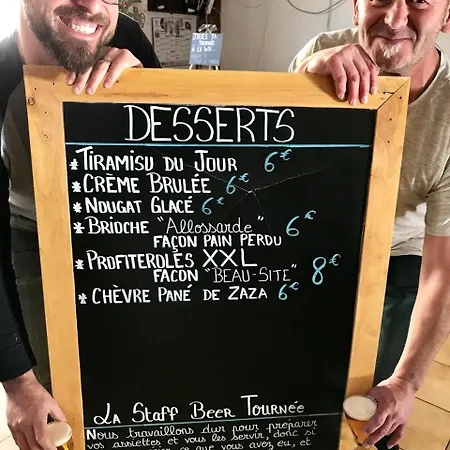 DESSERTS
* TIRAMISU DU JOUR 6€
* CRÈME BRULÉE 6€
* NOUGAT GLACÉ 6€
* BRIOCHE "Allossarde" 6€
FAÇON PAIN PERDU
* PROFITEROLES XXL
FAÇON "BEAU-SITE" 8€
* CHÈVRE PANÉ DE ZAZA 6€
LA STAFF BEER TOURNÉE
Nous travaillons dur pour préparer
vos assiettes et vous les servir, donc si
ce que vous avez eu, et